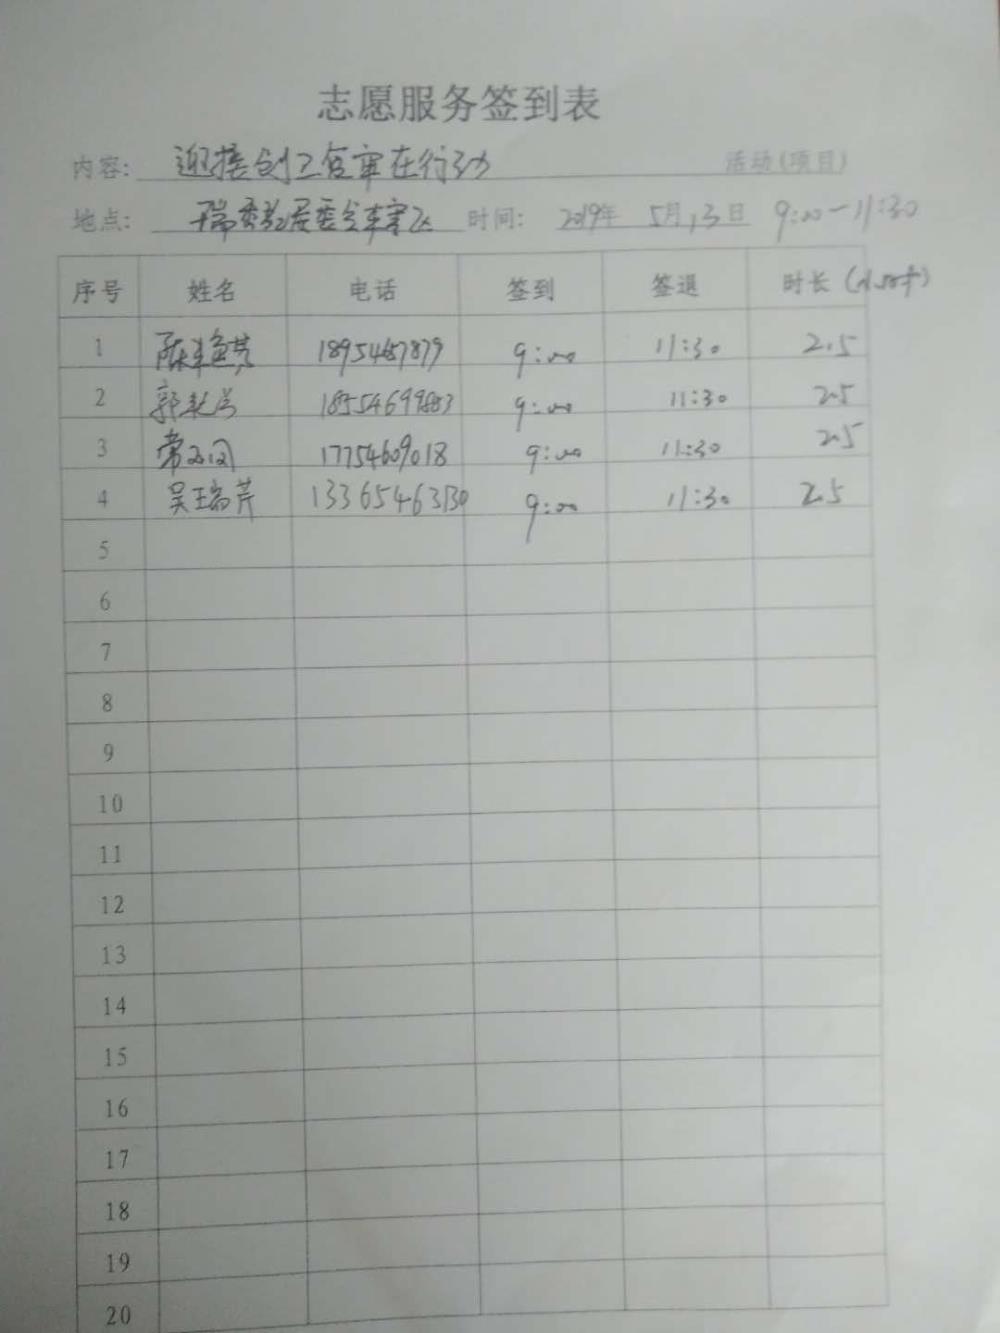 志愿服务签到表
内容: 迎接创卫复审在行动 活动(项目)
地点: 居委会辖区 时间: 2019年 5月13日 9:00-11:30
序号 姓名 电话 签到 签退 时长(小时)
1 陈 18954687879 9:00 11:30 2.5
2 郭 18554699883 9:00 11:30 2.5
3 常 17754609018 9:00 11:30 2.5
4 吴瑞芹 13365463130 9:00 11:30 2.5
5
6
7
8
9
10
11
12
13
14
15
16
17
18
19
20